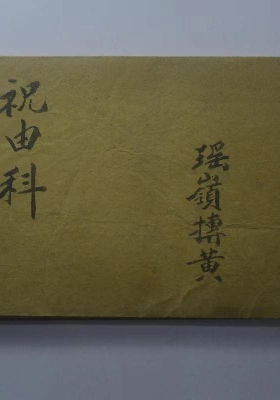 瑶嶺黄
祝由科